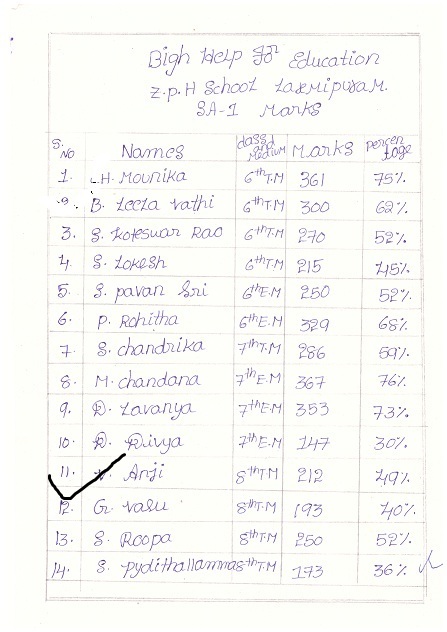 Bigh Help For Education
Z.P.H School Laxmipuram.
SA-1 Marks
S.No Names class and Medium Marks percentage
1. L.H. Mounika 6th T.M 361 75%
2. B. Leela Vathi 6th T.M 300 62%
3. S. Koteswar Rao 6th T.M 270 52%
4. S. Lokesh 6th T.M 215 45%
5. S. pavan Sri 6th E.M 250 52%
6. P. Rohitha 6th E.M 329 68%
7. S. chandrika 7th T.M 286 59%
8. M. chandana 7th E.M 367 76%
9. D. Lavanya 7th E.M 353 73%
10. D. Divya 7th E.M 147 30%
11. Anji 8th T.M 212 49%
12. G. Vasu 8th T.M 193 40%
13. S. Roopa 8th T.M 250 52%
14. S. Pydithallamma 8th T.M 173 36%